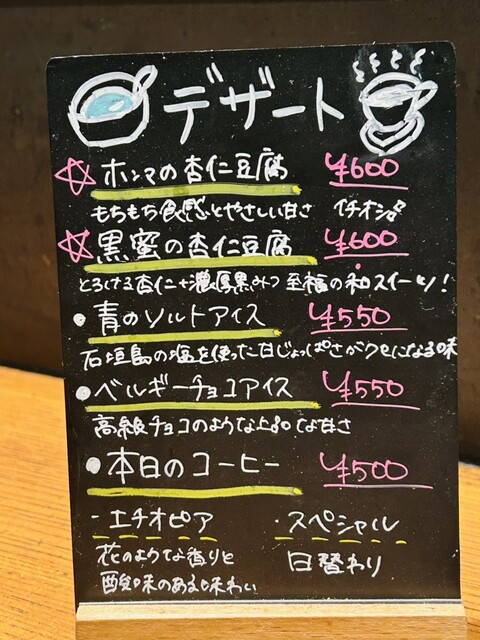 デザート
☆ホンマの杏仁豆腐 ¥600
もちもち食感とやさしい甘さ イチオシ!!
☆黒蜜の杏仁豆腐 ¥600
とろける杏仁×濃厚黒みつ 至福の和スイーツ!
・青のソルトアイス ¥550
石垣島の塩を使った甘じょっぱさがクセになる味
・ベルギーチョコアイス ¥550
高級チョコのような上品な甘さ
・本日のコーヒー ¥500
・エチオピア ・スペシャル
花のような香りと 日替わり
酸味のある味わい